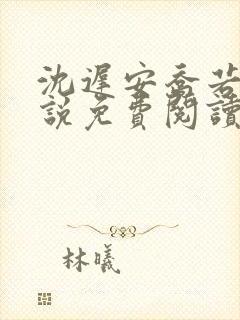 沈遲安喬若
說免費閱讀
林曦